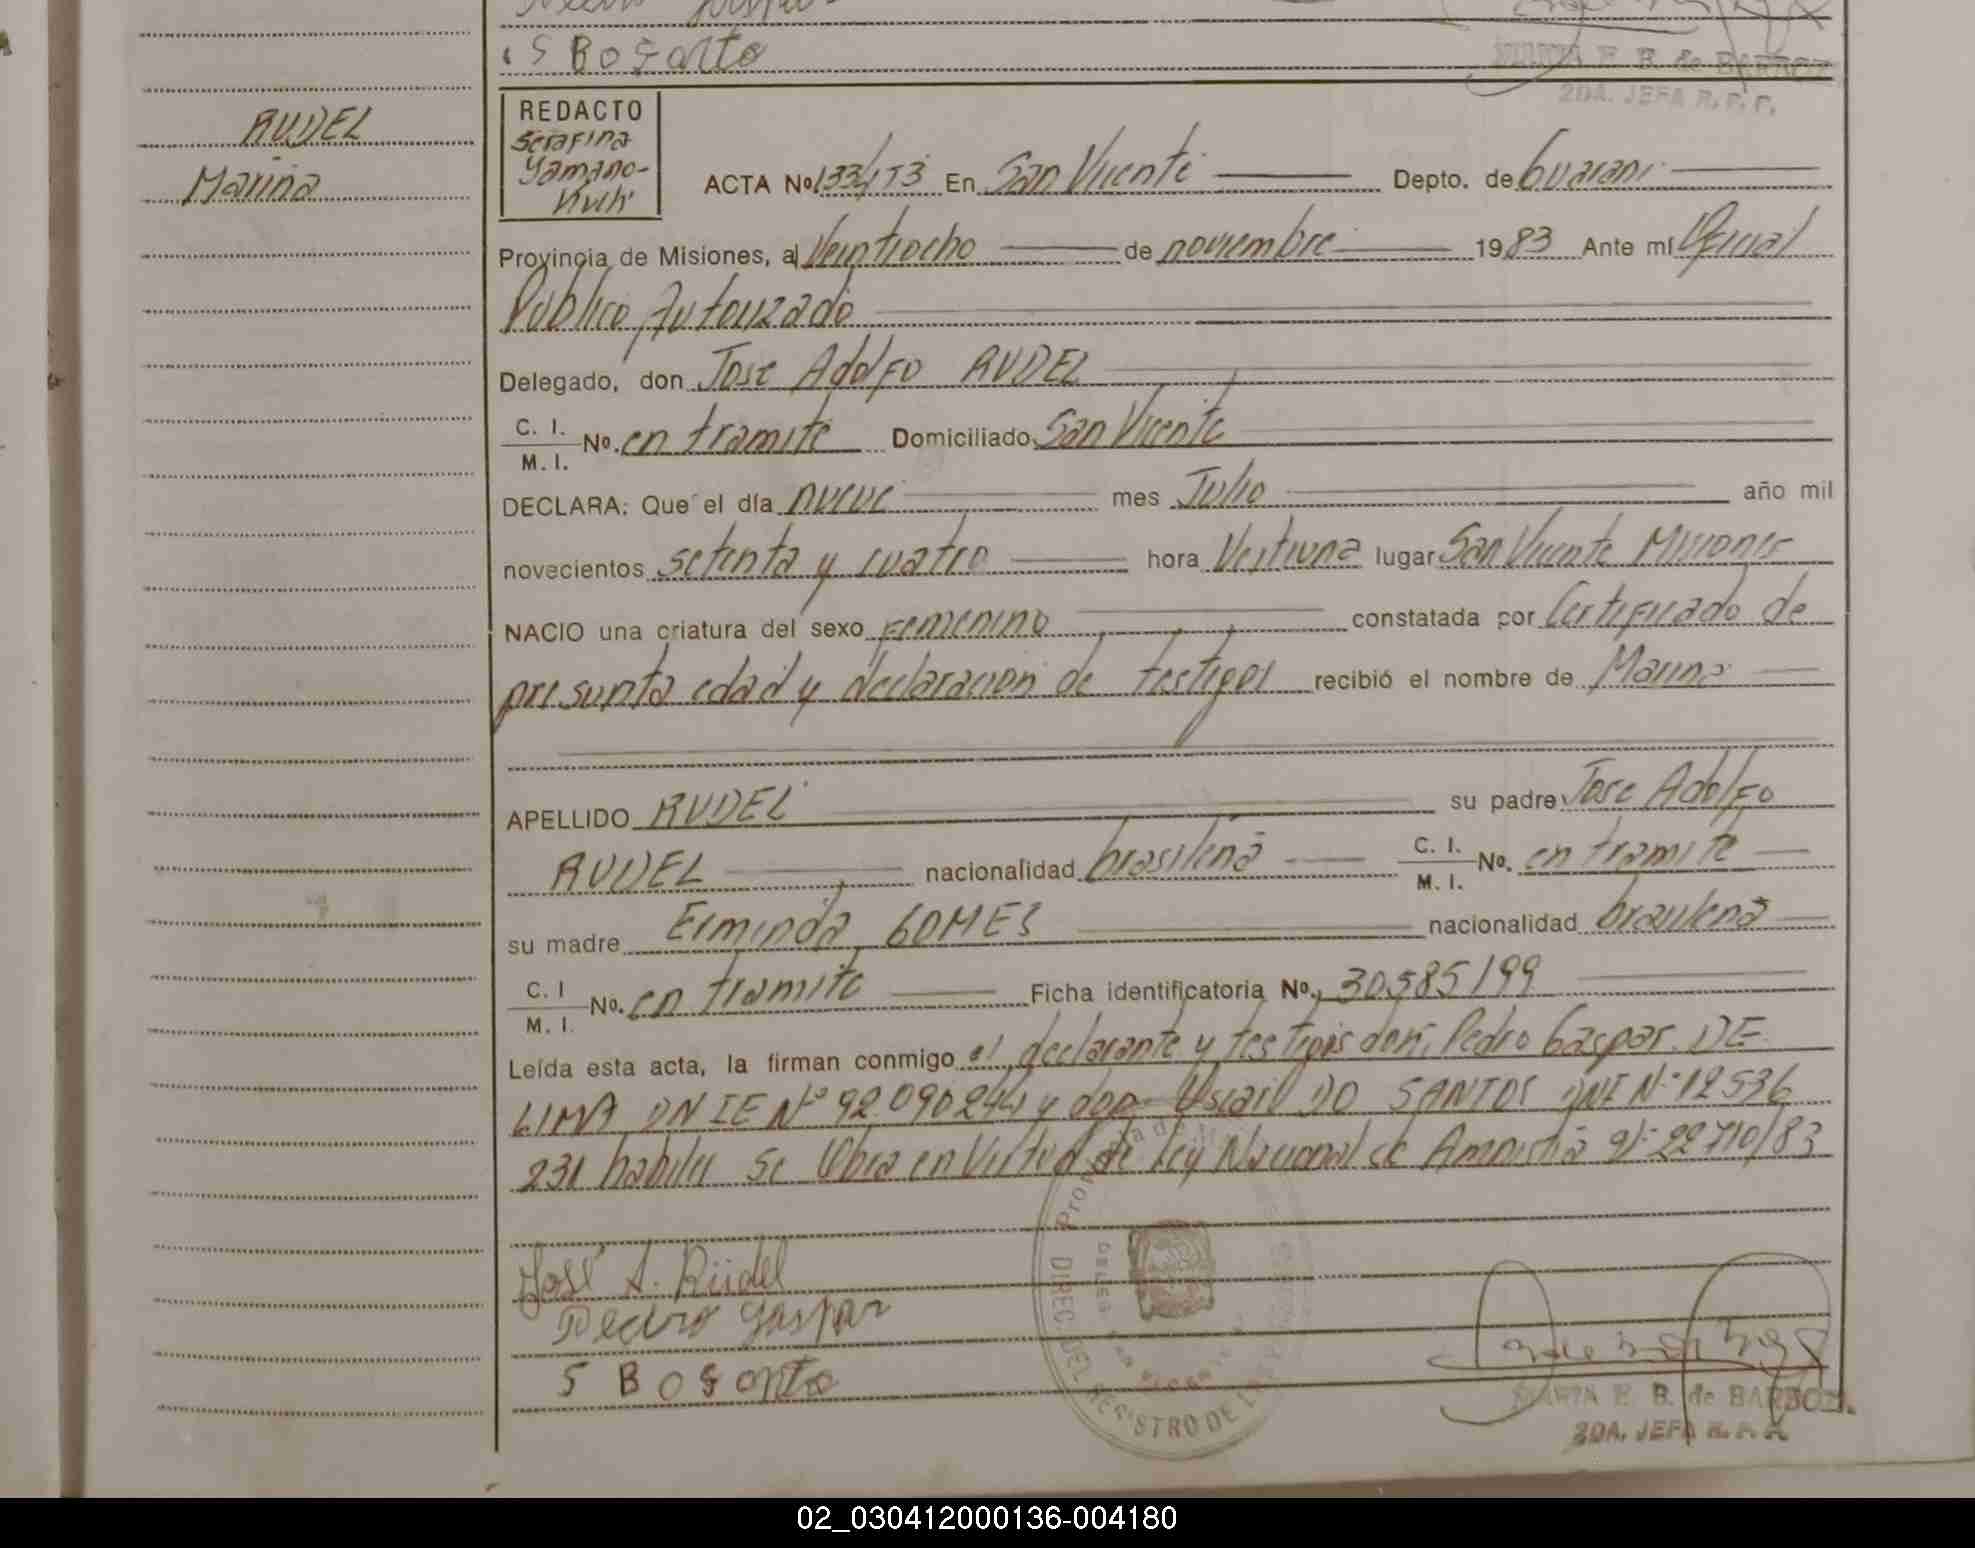 S Bo
MARIA E. B. de BARBOZA
2DA. JEFA R. P. P.
RUDEL
Marina
REDACTO
Serafina
Yamano-
ACTA No. 133/T3 En San Vicente Depto. de Guarani
Provincia de Misiones, a Veintiocho de noviembre 1983 Ante mí Oficial
Público Autorizado
Delegado, don Jose Adolfo RUDEL
C. I.
M. I. No. en tramite Domiciliado San Vicente
DECLARA: Que el día nueve mes Julio año mil
novecientos setenta y cuatro hora Veitiuna lugar San Vicente Misiones
NACIO una criatura del sexo femenino constatada por Certificado de
presunta edad y declaracion de testigos recibió el nombre de Marina
APELLIDO RUDEL su padre Jose Adolfo
RUDEL nacionalidad brasileña C. I.
M. I. No. en tramite
su madre Erminda GOMES nacionalidad brasileña
C. I
M. I. No. en tramite Ficha identificatoria No. 30.585199
Leída esta acta, la firman conmigo el declarante y testigos don: Pedro Gaspar DE
LIMA DNIE Nº 92.090244 y don DO SANTOS DNI Nº 12536
231 habiles Se Obra en Virtud de Ley Nacional de Amnistia Nº 22710/83
José A. Rüdel
Pedro Gaspar
S Bo
DIREC. DEL REGISTRO DE
MARIA E. B. de BARBOZA
2DA. JEFA R. P. P.
02_030412000136-004180